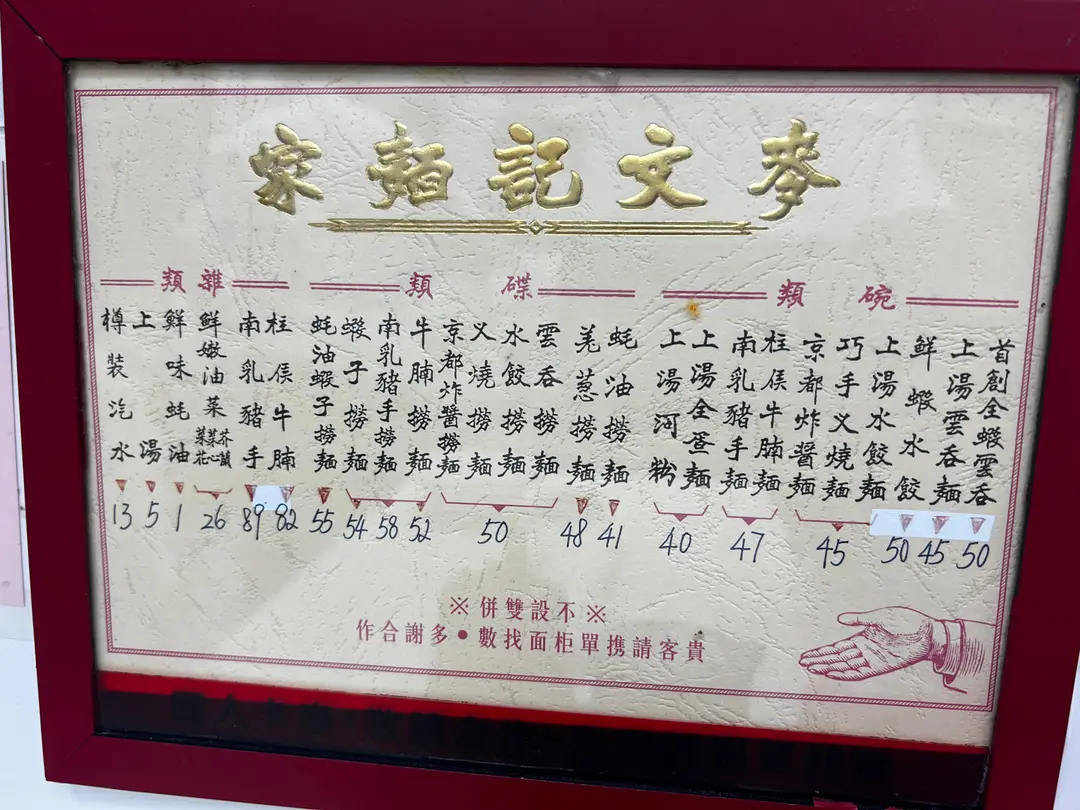 麥文記麵家
碗類
首創全蝦雲吞
上湯雲吞麵
50
鮮蝦水餃
45
上湯水餃麵
50
巧手义燒麵
京都炸醬麵
45
柱侯牛腩麵
南乳豬手麵
47
上湯全蛋麵
上湯河粉
40
碟類
蚝油撈麵
41
羌蔥撈麵
48
雲吞撈麵
水餃撈麵
义燒撈麵
京都炸醬撈麵
50
牛腩撈麵
52
南乳豬手撈麵
58
蝦子撈麵
54
蚝油蝦子撈麵
55
雜類
柱侯牛腩
82
南乳豬手
89
鮮嫩油菜
芥蘭
菜心
菜花
26
鮮味蚝油
1
上湯
5
樽裝汽水
13
※不設雙併※
貴客請携單柜面找數•多謝合作